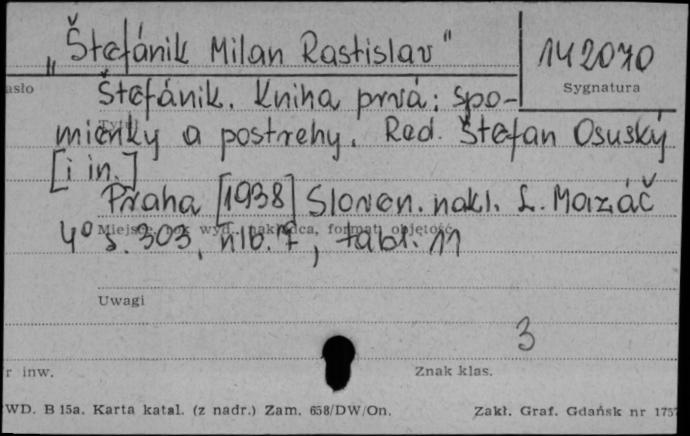 „Štefánik Milan Rastislav"
142070
asło
Sygnatura
Štefánik. Kniha prvá: spo-
Tytuł
mienky a postrehy. Red. Štefan Osuský
[i in.]
Praha [1938] Sloven. nakl. L. Mazáč
Miejsce, rok wyd., nakładca, format, objętość
4° s. 303, nlb. 7, tabl. 11
Uwagi
3
r inw.
Znak klas.
WD. B 15a. Karta katal. (z nadr.) Zam. 658/DW/On.
Zakł. Graf. Gdańsk nr 1757